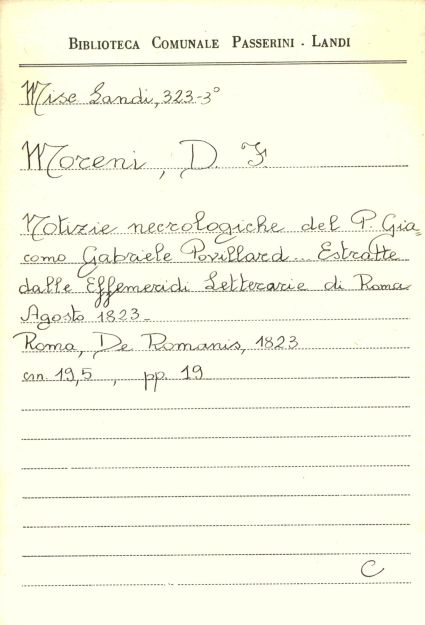 BIBLIOTECA COMUNALE PASSERINI - LANDI
Misc Landi, 323-3°
Moreni, D. F.
Notizie necrologiche del P. Gia=
como Gabriele Povillard... Estratte
dalle Effemeridi Letterarie di Roma
Agosto 1823-
Roma, De Romanis, 1823
cm. 19,5, pp. 19
C